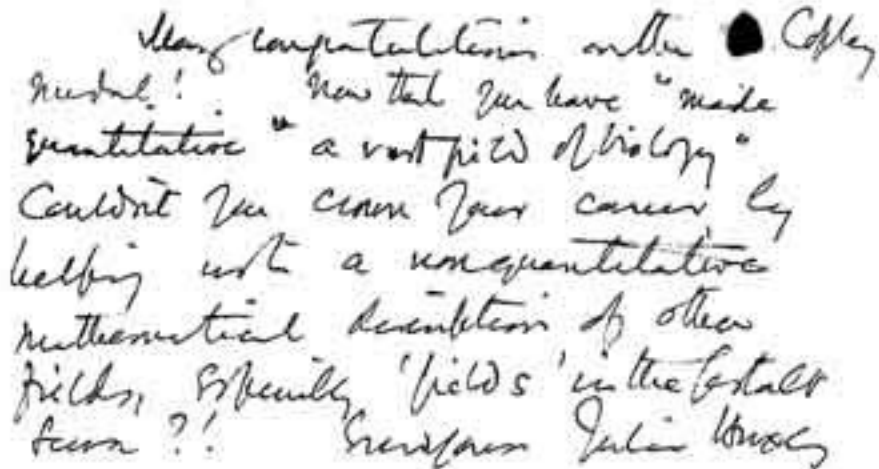 Many congratulations on the Copley
medal! Now that you have "made
quantitative" "a vast field of biology"
Couldn't you crown your career by
helping with a nonquantitative
mathematical description of other
fields, especially 'fields' in the Gestalt
sense?! Julian Huxley